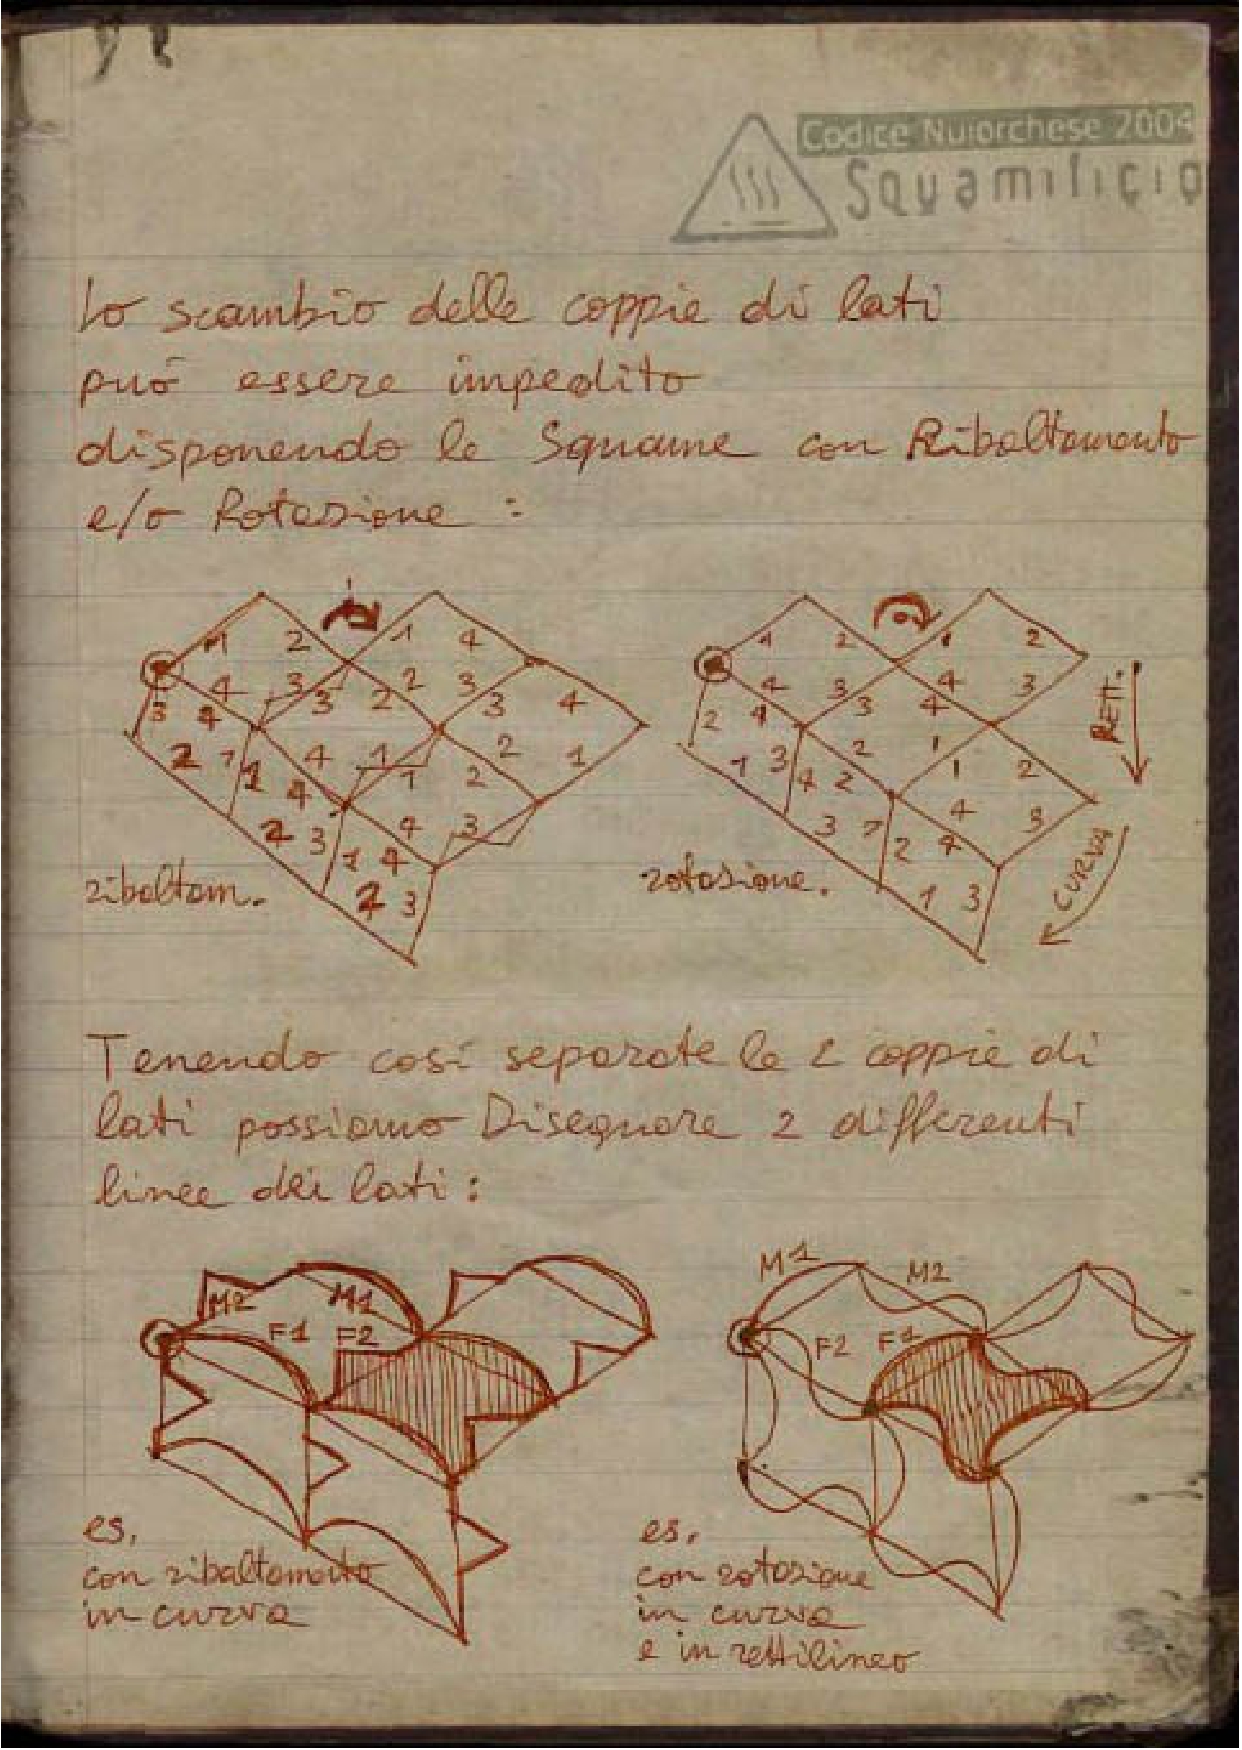 Codice Nuiorchese 2004
Squamificio
Lo scambio delle coppie di lati
può essere impedito
disponendo le Squame con Ribaltamento
e/o Rotazione :
1 2 1 4
4 3 3 2 2 3 3 4
3 4 4 1 1 2 2 1
2 1 1 4 4 3
2 3 1 4
2 3
ribaltam.
1 2 1 2
4 3 3 4 4 3
2 4 2 1 1 2
1 3 4 2 4 3
3 1 2 4
1 3
RETT.
CURVA
rotazione.
Tenendo così separate le 2 coppie di
lati possiamo Disegnare 2 differenti
linee dei lati :
M2 M1
F1 F2
M1 M2
F2 F1
es.
con ribaltamento
in curva
es.
con rotazione
in curva
e in rettilineo